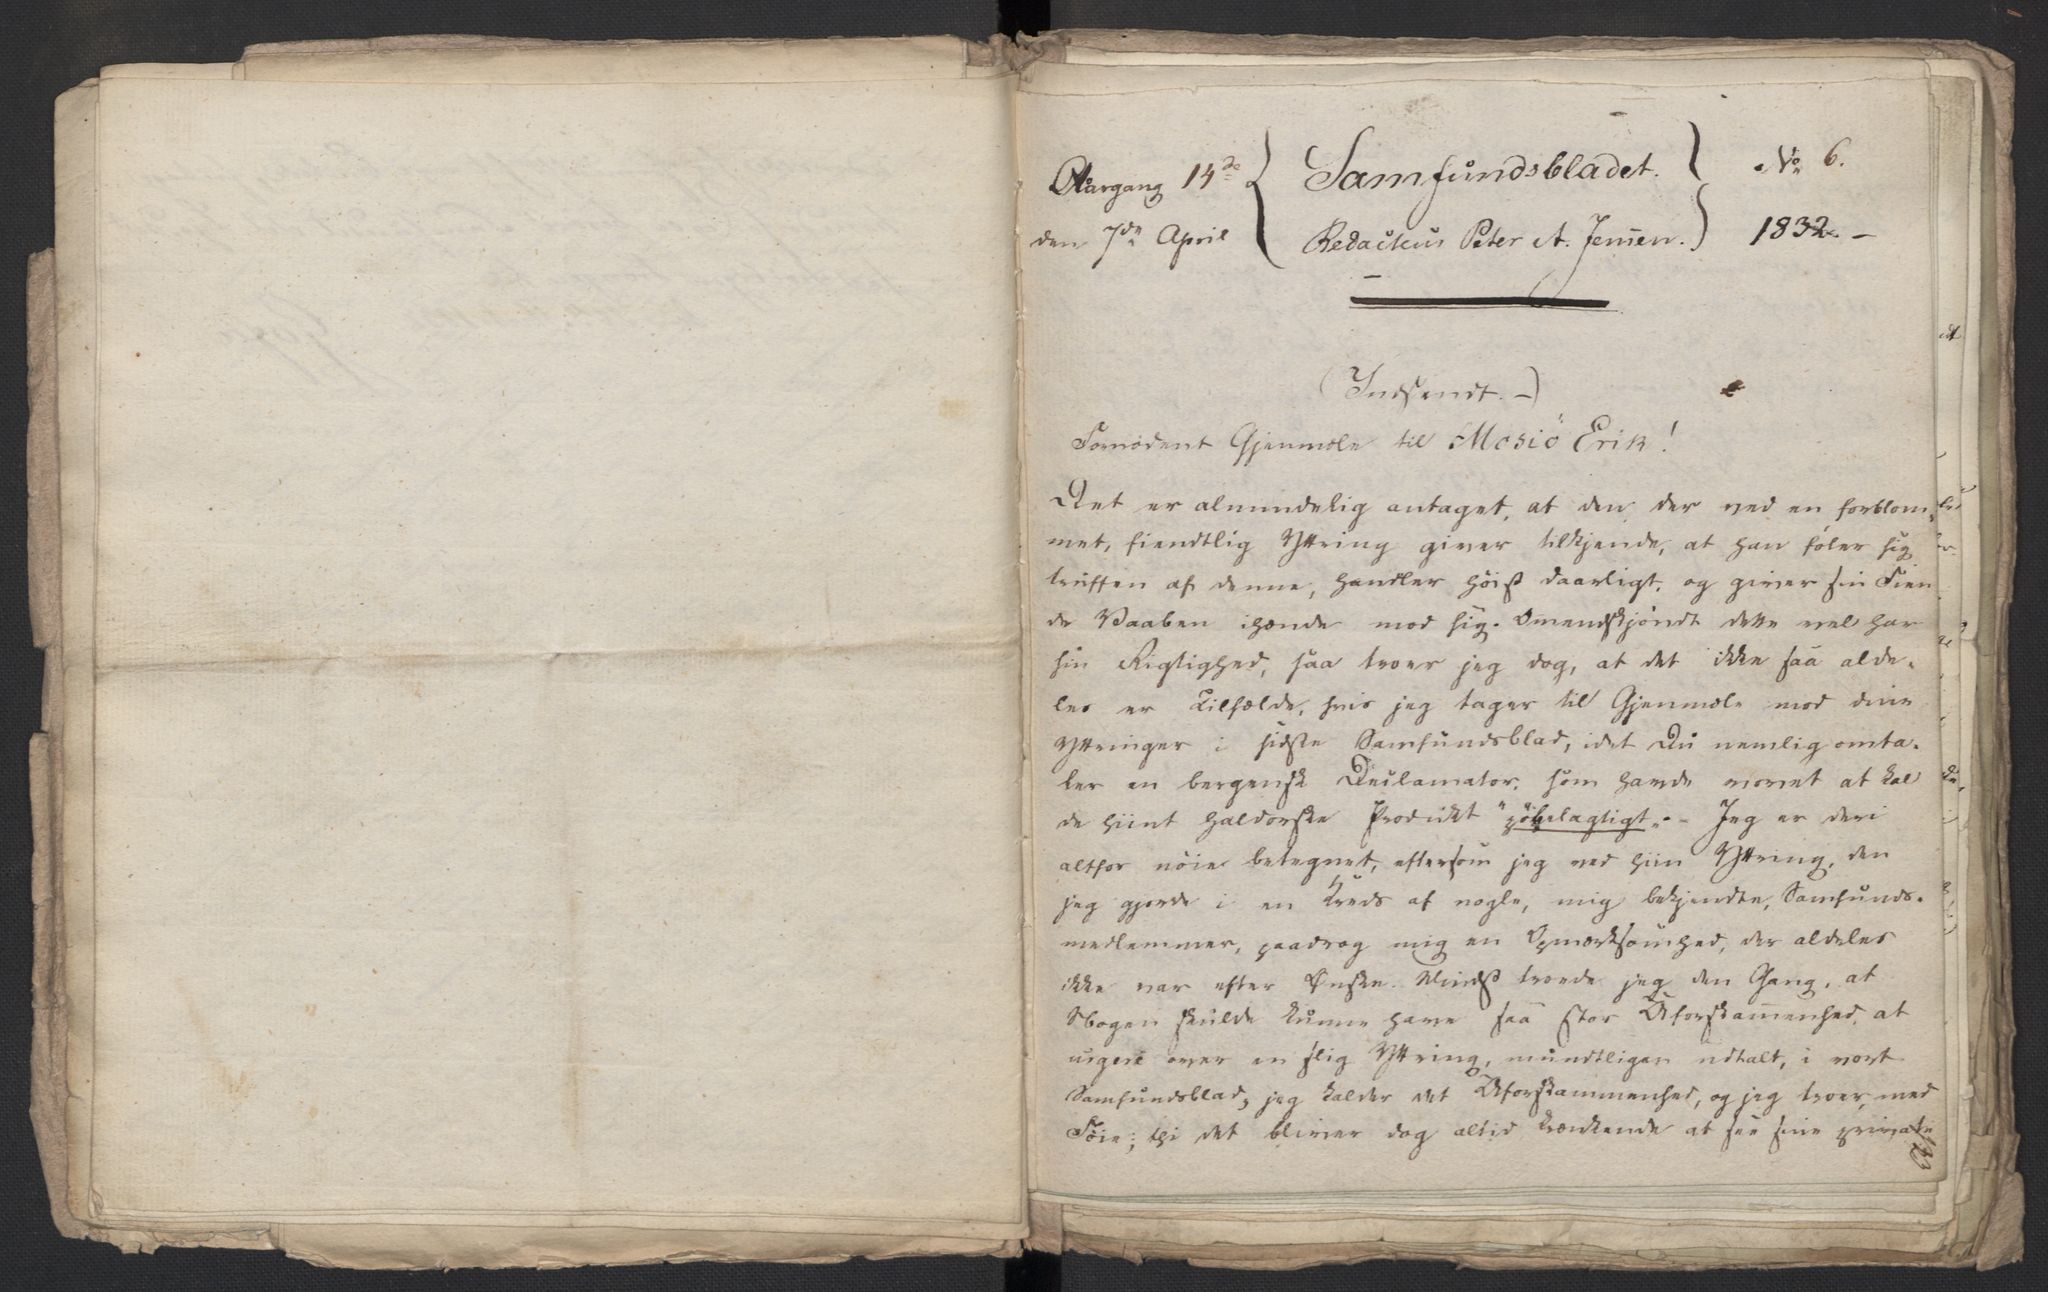 Aargang 14de { Samfundsbladet. } No 6.
den 7de April { Redacteur Peter A. Jensen. } 1832. –
(Indsendt. –)
Fornødent Gjenmæle til Mosiö Erik!
Det er almindelig antaget, at den, der ved en forblom-
met, fiendtlig Yttring giver tilkjende, at han føler sig
truffen af denne, handler høist daarligt, og giver sin Fien
de Vaaben ihænde mod sig. Omendskjøndt dette vel har
sin Rigtighed, saa troer jeg dog, at det ikke saa alde-
les er Tilfælde, hvis jeg tager til Gjenmæle mod dine
Yttringer i sidste Samfundsblad, idet Du nemlig omta-
ler en bergensk Declamator, som havde vovet at kal
de hiint haldorske Produkt "pøbelagtigt". – Jeg er deri
altfor nøie betegnet, eftersom jeg ved hiin Yttring, den
jeg gjorde i en Kreds af nogle, mig bekjendte, Samfunds-
medlemmer, paadrog mig en Opmærksomhed, der aldeles
ikke var efter Ønske. Mindst troede jeg den Gang, at
Nogen skulde kunne have saa stor Uforskammenhed, at
over en slig Yttring, mundtligen udtalt, i vort
Samfundsblad; jeg kalder det Uforskammenhed, og jeg troer, med
Føie; thi det bliver dog altid krænkende at see sine private